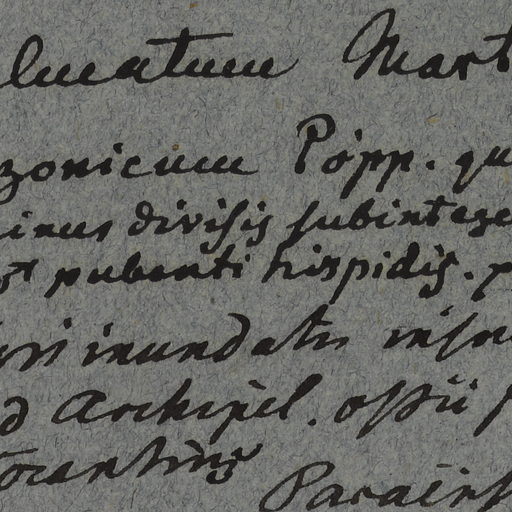 lucatum Mart
zonicum Pöpp. qu
inus divisis subintege
st pubenti hispidis. p
inundatis insu
d Archipel. ostii
Tocantins
Paraëns